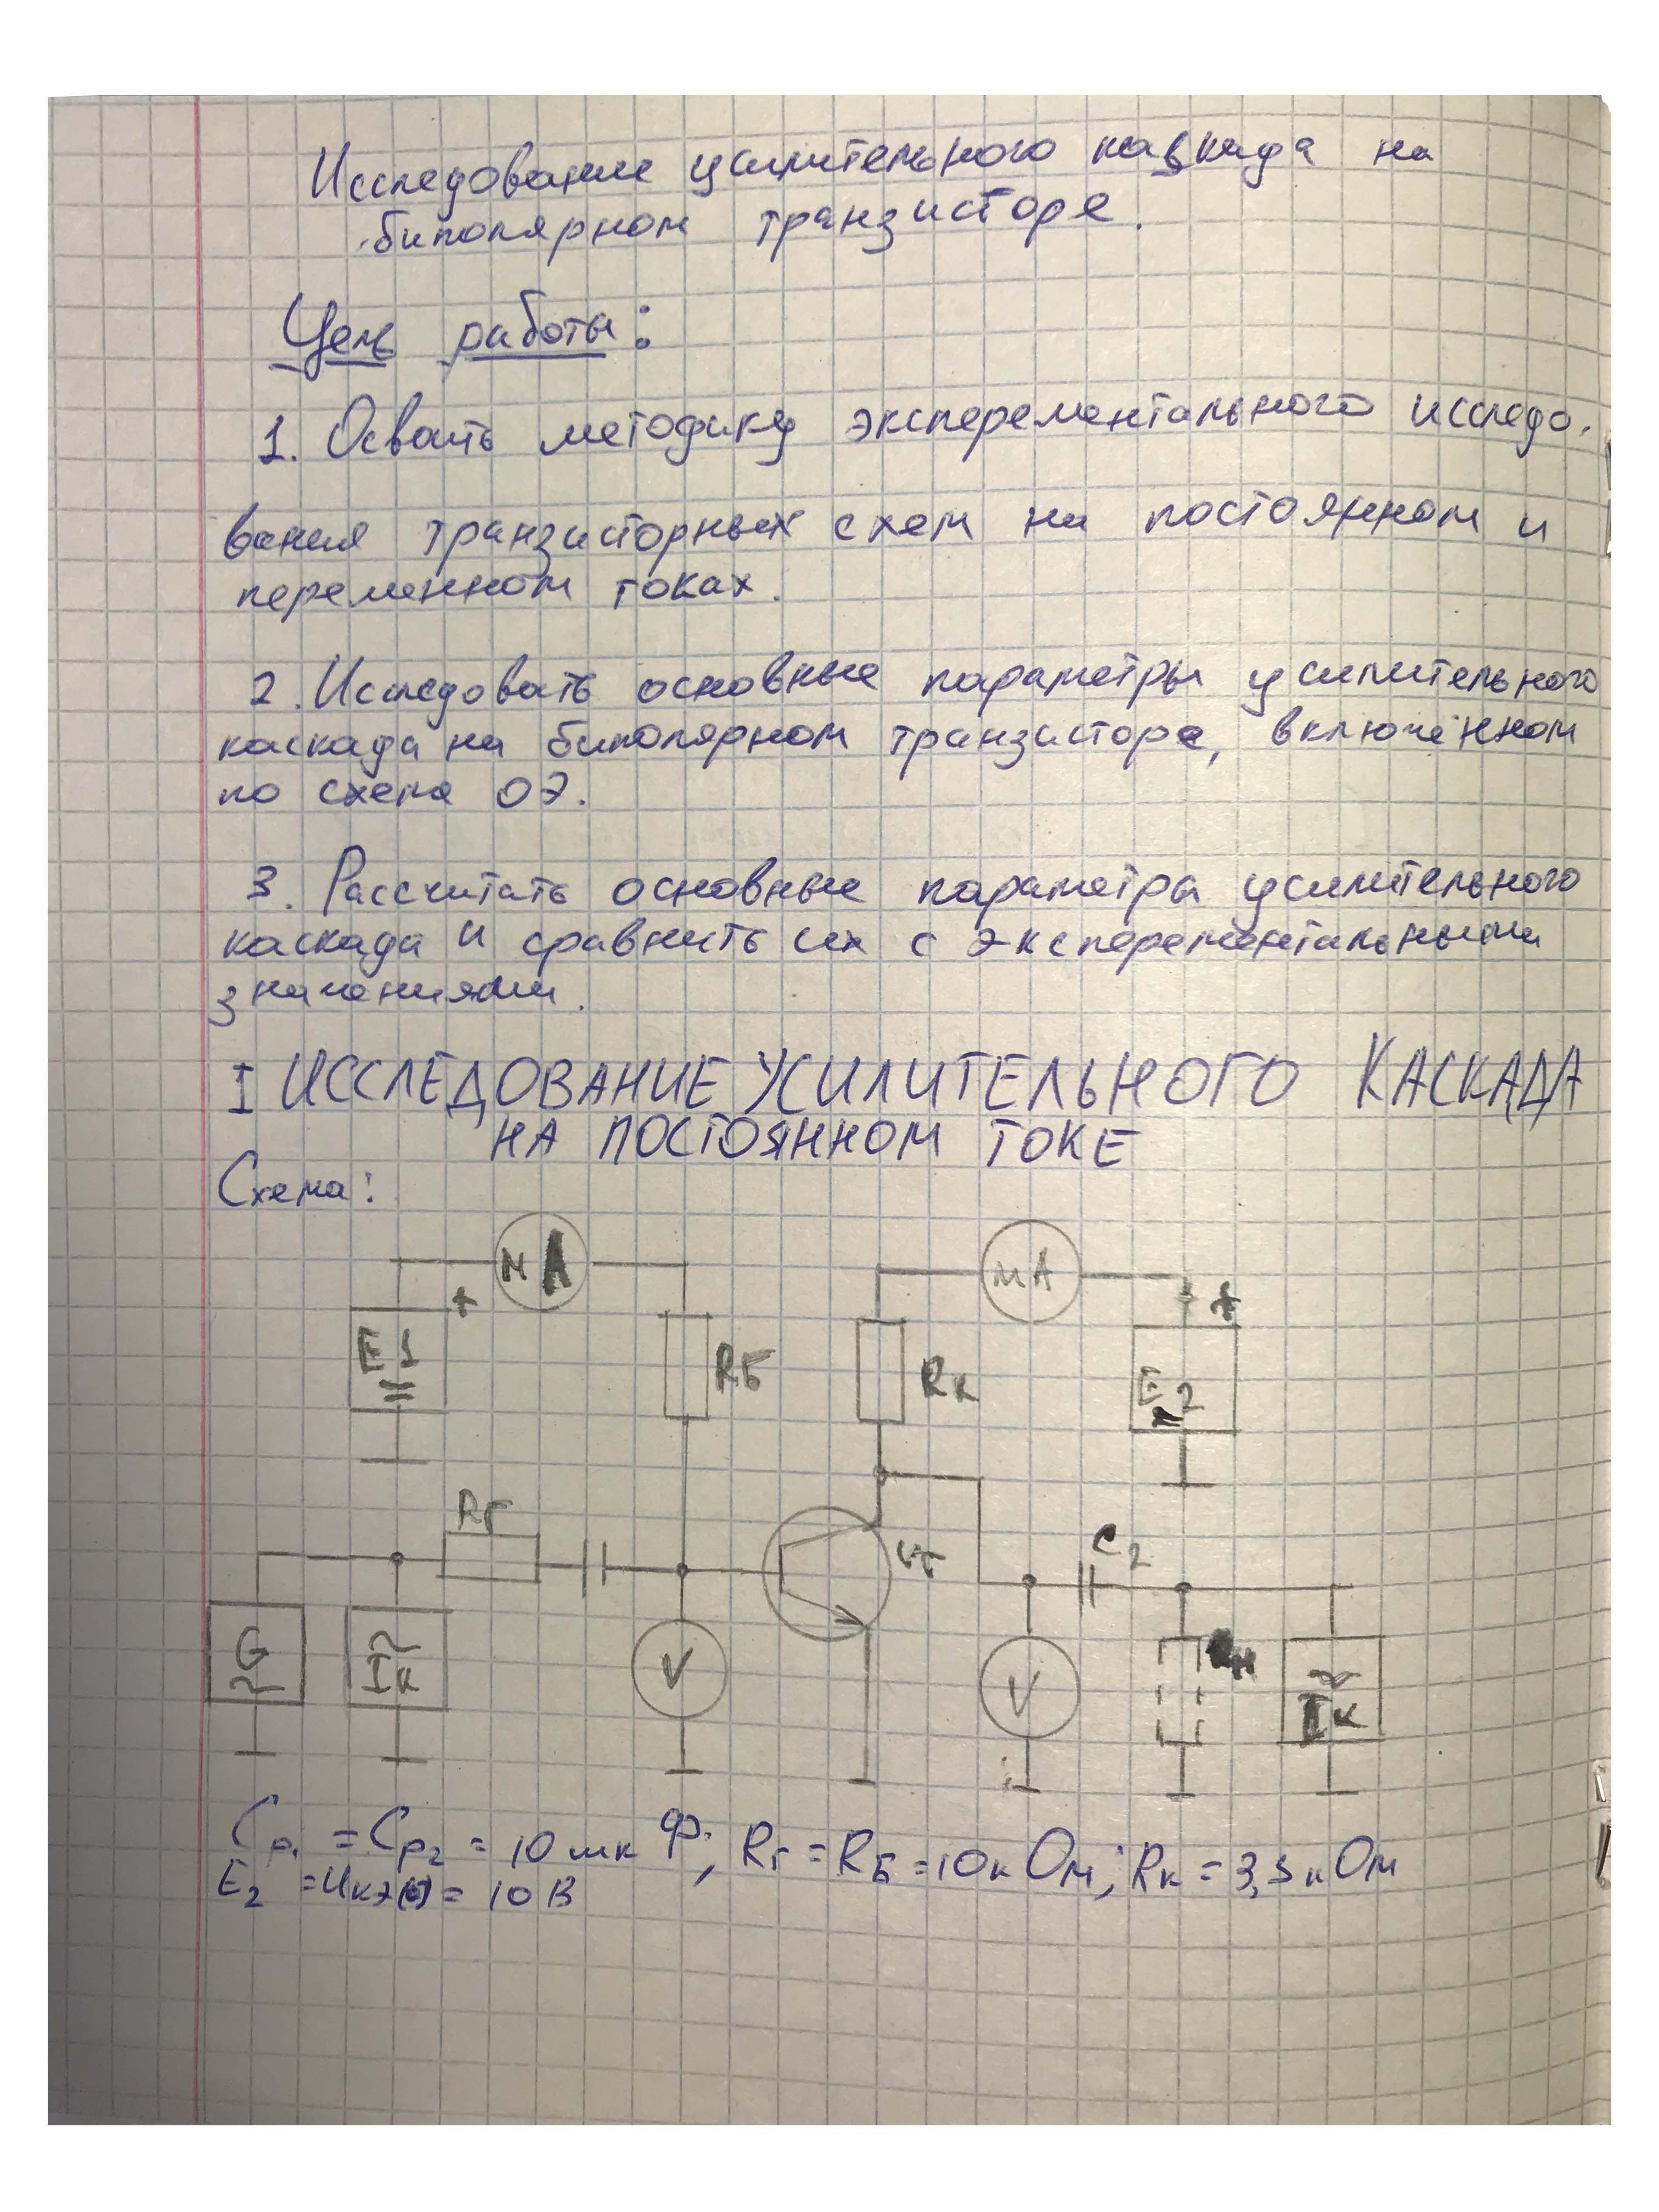 Исследование усилительного каскада на
биполярном транзисторе.
Цель работы:
1. Освоить методику эксперементального исследо-
вания транзисторных схем на постоянном и
переменном токах.
2. Исследовать основные параметры усилительного
каскада на биполярном транзисторе, включённом
по схеме ОЭ.
3. Рассчитать основные параметры усилительного
каскада и сравнить их с эксперементальными
значениями.
I ИССЛЕДОВАНИЕ УСИЛИТЕЛЬНОГО КАСКАДА
НА ПОСТОЯННОМ ТОКЕ
Схема:
мА мА
+ +
E1 = RБ Rк E2 =
Rг
VT C2
G ~ ~ Iк V V Rн ~ Iк
Cр1 = Cр2 = 10 мкФ; Rг = RБ = 10кОм; Rк = 3,3кОм
E2 = Uкэ = 10В